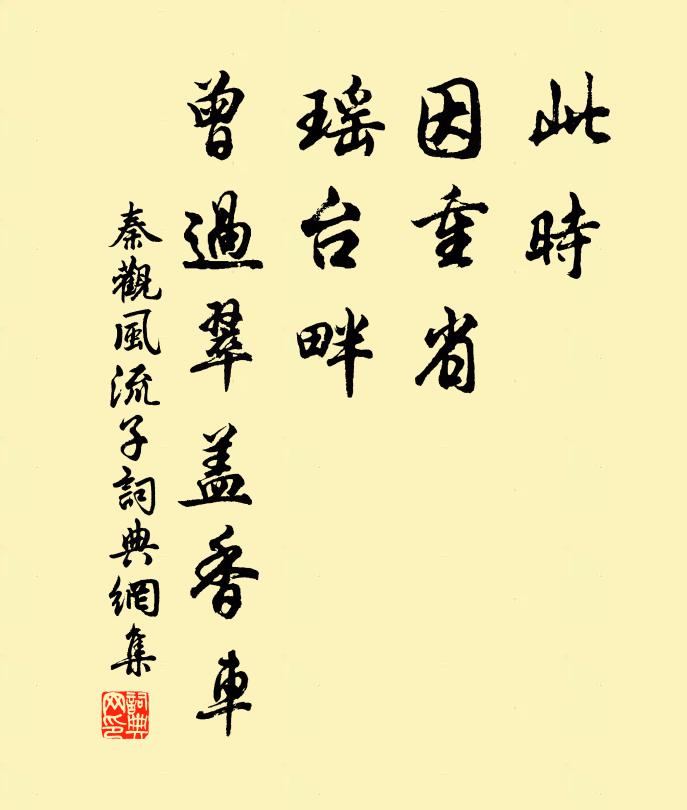 此時
因重省
瑶台畔
曾過翠盖香車
秦觀風流子詞典網集
詞典网印